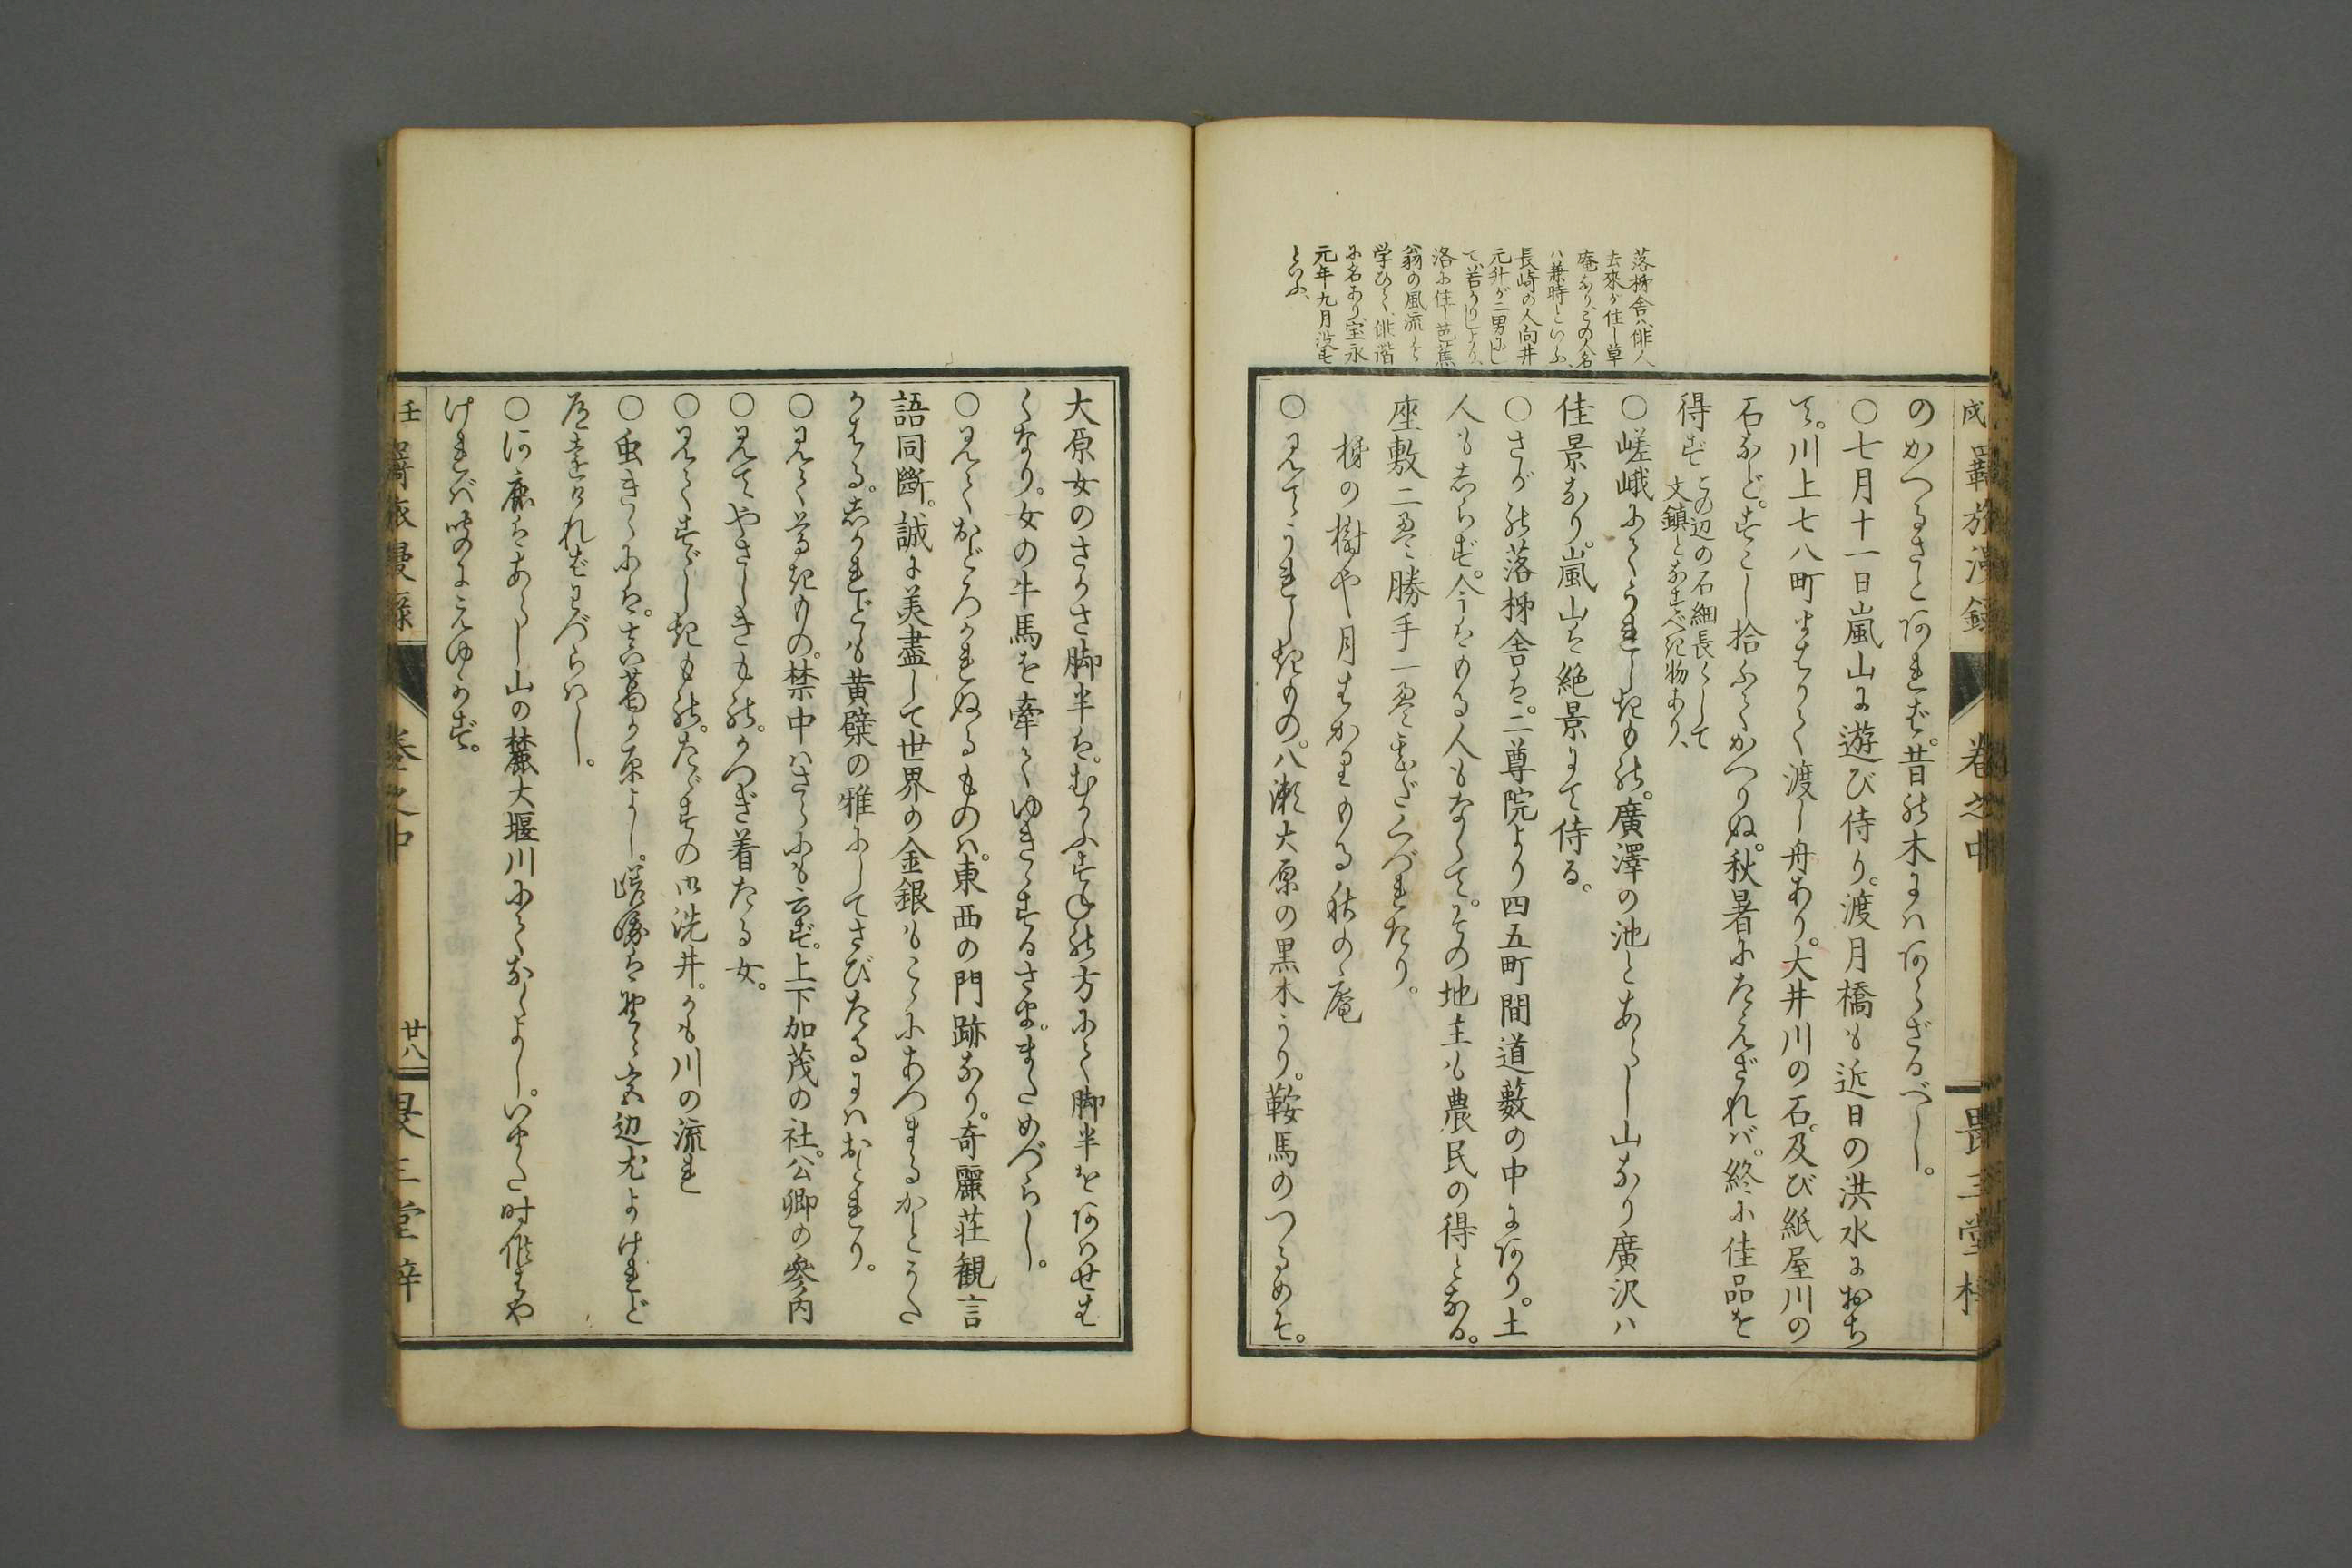 戌 羇旅漫録 卷之中 畏三堂梓
のかへるさとあれば。昔の木にはあらざるべし。
○七月十一日嵐山に遊び侍り。渡月橋も近日の洪水におち
て。川上七八町まはりて渡し舟あり。大井川の石。及び紙屋川の
石など。すこし拾ふてかへりぬ。秋暑にたえざれバ。終に佳品を
得ず この辺の石細長くして
文鎮となすべき物あり、
○嵯峨にてうれしきもの。廣澤の池とあらし山なり廣沢ハ
佳景なり。嵐山は絶景にて侍る。
○さがの落柿舎は。二尊院より四五町間道藪の中にあり。土
人もしらず。今はもる人もなくて。その地主も農民の得となる。
座敷二畳勝手一畳半だいづれたり。
柿の樹や月もかりもる秋の庵
○見てうれしきもの。八瀬大原の黒木うり。鞍馬のつるめそ。
落柿舎ハ俳人
去來が住し草
庵なり、この人名
ハ兼時といふ、
長崎の人向井
元升が二男にし
て、若かりしより、
洛に住し芭蕉
翁の風流を
学びて、俳諧
に名あり、宝永
元年九月没
といふ、
大原女のさかさ脚半は。むかふずねの方にて脚半をあはせも
くなり。女の牛馬を牽てゆきゝするさま。まためづらし。
○見ておどろかれぬるものハ。東西の門跡なり。奇麗荘観言
語同斷。誠に美盡して世界の金銀もこゝにあつまるかとうた
がはる。しかれども黄檗の雅にしてさびたるにハおとれり。
○見て尊きもの。禁中ハさらにも云ず。上下加茂の社。公卿の參内
○見てやさしきもの。かつぎ着たる女。
○見てすゞしきもの。たゞすの御洗井。かも川の流れ
○虫きくには。真葛が原よし。嵯峨は野々宮辺尤よけれど
道遠ければわづらはし。
○河鹿はあらし山の麓大堰川にてなくよし。いまだ時候はや
けれバ吟のきこえゆかず。
壬 羇旅漫録 卷之中 廿八 畏三堂梓